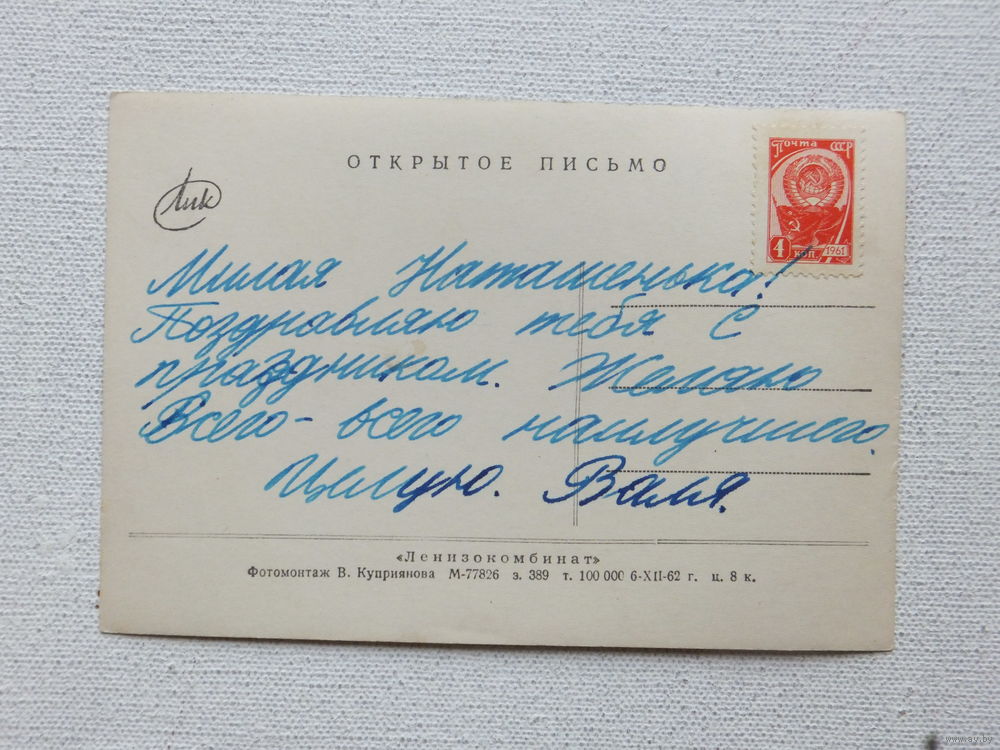 ОТКРЫТОЕ ПИСЬМО
Почта СССР
4 коп. 1961
Лик
Милая Наташенька!
Поздравляю тебя с
праздником. Желаю
Всего-всего наилучшего.
Целую. Валя.
«Ленизокомбинат»
Фотомонтаж В. Куприянова М-77826 з. 389 т. 100 000 6-XII-62 г. ц. 8 к.
www.ay.by